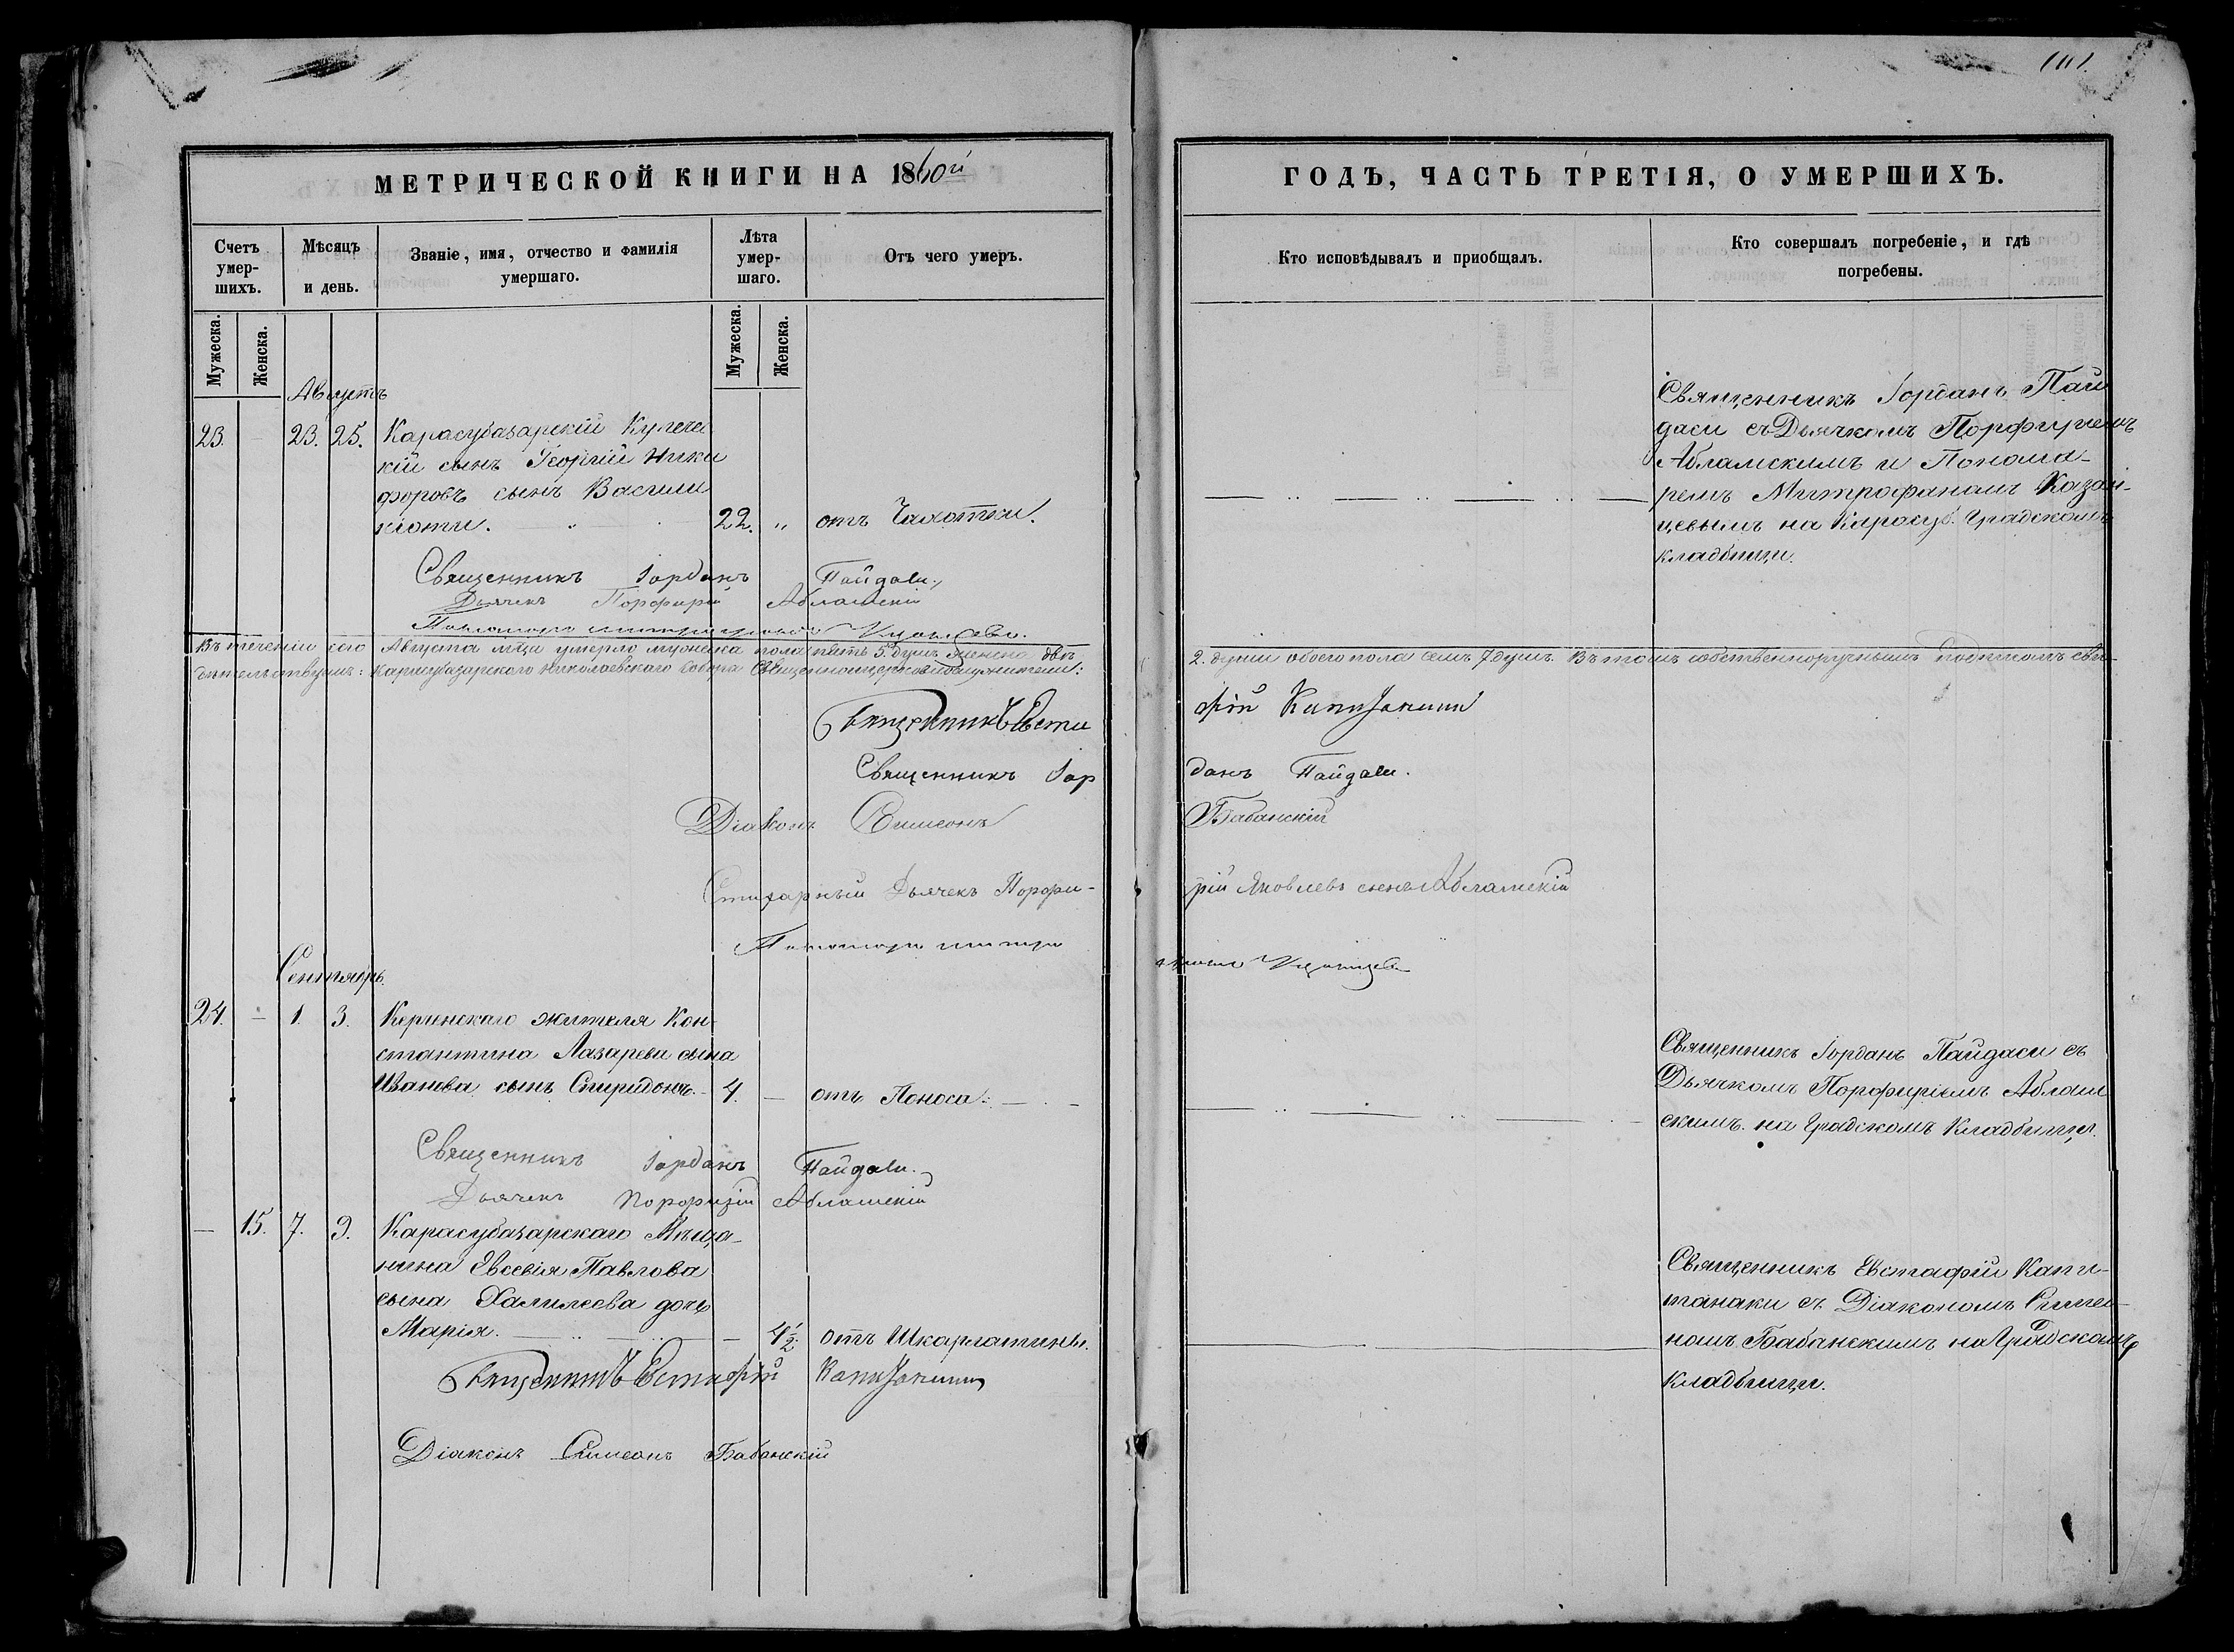 111.
МЕТРИЧЕСКОЙ КНИГИ НА 1860й
ГОДЪ, ЧАСТЬ ТРЕТІЯ, О УМЕРШИХЪ.
Счетъ умер-шихъ.
Мѣсяцъ и день.
Званіе, имя, отчество и фамилія умершаго.
Лѣта умер-шаго.
Отъ чего умеръ.
Кто исповѣдывалъ и приобщалъ.
Кто совершалъ погребеніе, и гдѣ погребены.
Мужеска.
Женска.
Мужеска.
Женска.
Августъ
23. — 23. 25. Карасубазарскій Купече
кій сынъ Георгій Ники
форовъ сынъ Васили
кіоти. 22. „ отъ Чахотки.
Священникъ Іорданъ Пай
даси съ Дьячкомъ Порфиріемъ
Абламскимъ и Понома-
ремъ Митрофаномъ Казан-
цевымъ на Карасуб. Градскомъ
кладбищи.
Священникъ Іорданъ Пайдаси.
Дьячекъ Порфирій Абламскій
Пономарь Митрофанъ Казанцевъ.
Въ теченіи сего Августа мѣца умерло мужеска пола пять 5 душъ женска двѣ
2. души обоего пола семь 7 душъ. Въ томъ собственноручнымъ подписомъ сви-
дѣтельствуемъ: Карасубазарскаго Николаевскаго Собора Священноцерковнослужители:
Священникъ Евста
фій Капитанаки
Священникъ Іор
данъ Пайдаси.
Діаконъ Симеонъ
Бабанскій
Стихарный Дьячекъ Порфи-
рій Яковлевъ сынъ Абламскій
Пономарь Митро
фанъ Казанцевъ
Сентябрь.
24. — 1. 3. Керченскаго жителя Кон-
стантина Лазарева сына
Иванова сынъ Спиридонъ. 4. — отъ Поноса.
Священникъ Іорданъ Пайдаси съ
Дьячкомъ Порфиріемъ Аблам
скимъ. на Градскомъ Кладбищи.
Священникъ Іорданъ Пайдаси.
Дьячекъ Порфирій Абламскій
— 15. 7. 9. Карасубазарскаго Мѣща-
нина Евсевія Павлова
сына Халилеева дочь
Марія. — 4½. отъ Шкарлатины.
Священникъ Евстафій Капи-
танаки съ Діакономъ Симео-
номъ Бабанскимъ на Градскомъ
кладбищи.
Священникъ Евстафій Капитанаки
Діаконъ Симеонъ Бабанскій